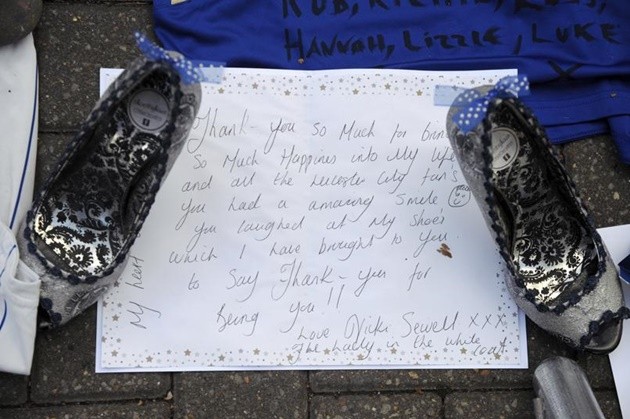 ROB, RICHIE, ROSS,
HANNAH, LIZZIE, LUKE
X
Thank-you so Much for
So Much Happiness into My life
and all the Leicester City fan's
you had a amazing Smile
you laughed at My Shoes
which I have brought to you
to Say Thank-you for
being you!!
My heart
Love Vicki Sewell xxx
The Lady in the white
coat